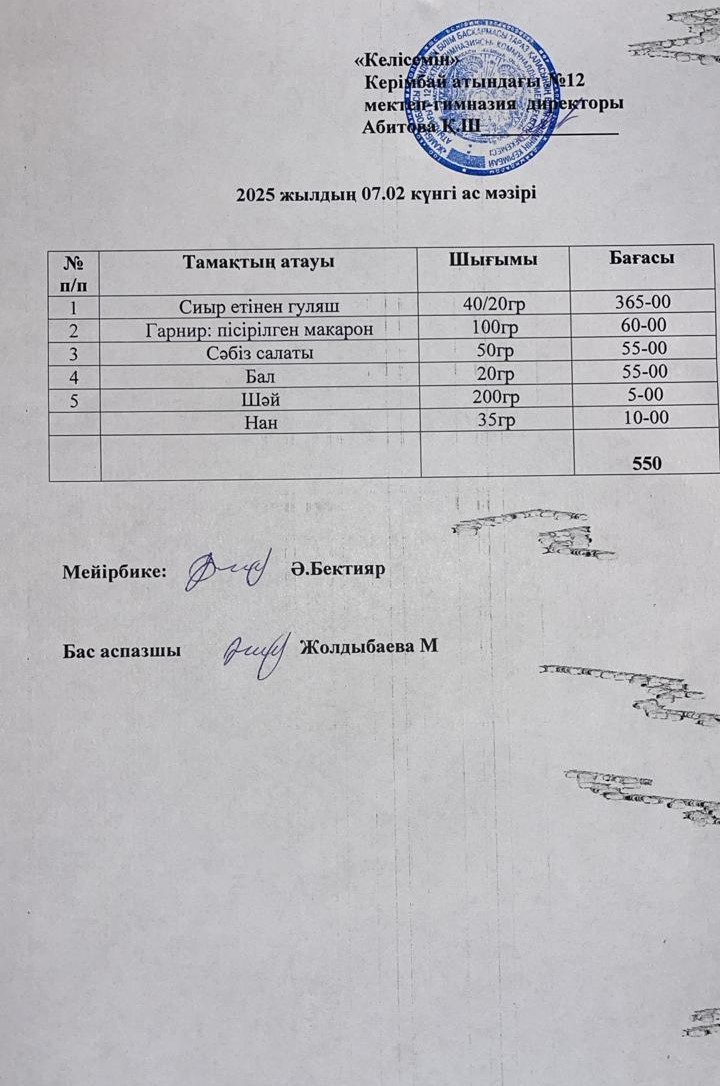 «Келісемін»
Керімбай атындағы №12
мектеп-гимназия директоры
Абитова К.Ш
2025 жылдың 07.02 күнгі ас мәзірі
№ п/п Тамақтың атауы Шығымы Бағасы
1 Сиыр етінен гуляш 40/20гр 365-00
2 Гарнир: пісірілген макарон 100гр 60-00
3 Сәбіз салаты 50гр 55-00
4 Бал 20гр 55-00
5 Шәй 200гр 5-00
Нан 35гр 10-00
550
Мейірбике: Ә.Бектияр
Бас аспазшы Жолдыбаева М